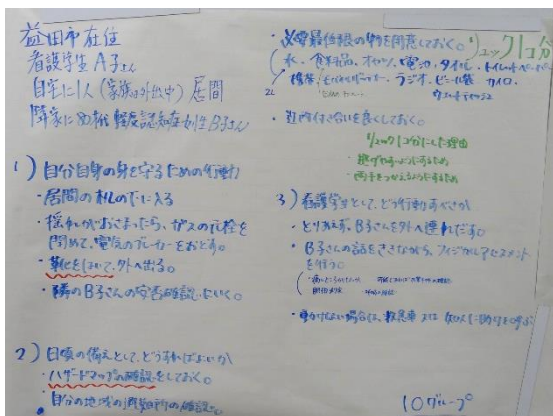 益田市在住
看護学生 A子さん
自宅に1人(家族は外出中) 居間
隣家に80代 軽度認知症女性B子さん
1) 自分自身の身を守るための行動
・居間の机の下に入る
・揺れがおさまったら、ガスの元栓を
閉めて、電気のブレーカーをおとす。
・靴をはいて、外へ出る。
・隣のB子さんの安否確認にいく。
2) 日頃の備えとして、どうすればよいか
・ハザードマップの確認をしておく。
・自分の地域の避難所の確認。
・必要最低限の物を用意しておく。リュック1コ分
水、食料品、オヤツ、電池、タオル、トイレットペーパー
2L
携帯/モバイルバッテリー、ラジオ、ビニール袋、カイロ
ウェットティッシュ
・近所付き合いを良くしておく。
リュック1コ分にした理由
・逃げやすいようにするため
・両手をつかえるようにするため
3) 看護学生として、どう行動すべきか
・とりあえず、B子さんを外へ連れだす。
・B子さんの話をききながら、フィジカルアセスメント
を行う。
・動けない場合は、救急車 または 知人に助けを呼ぶ
10グループ